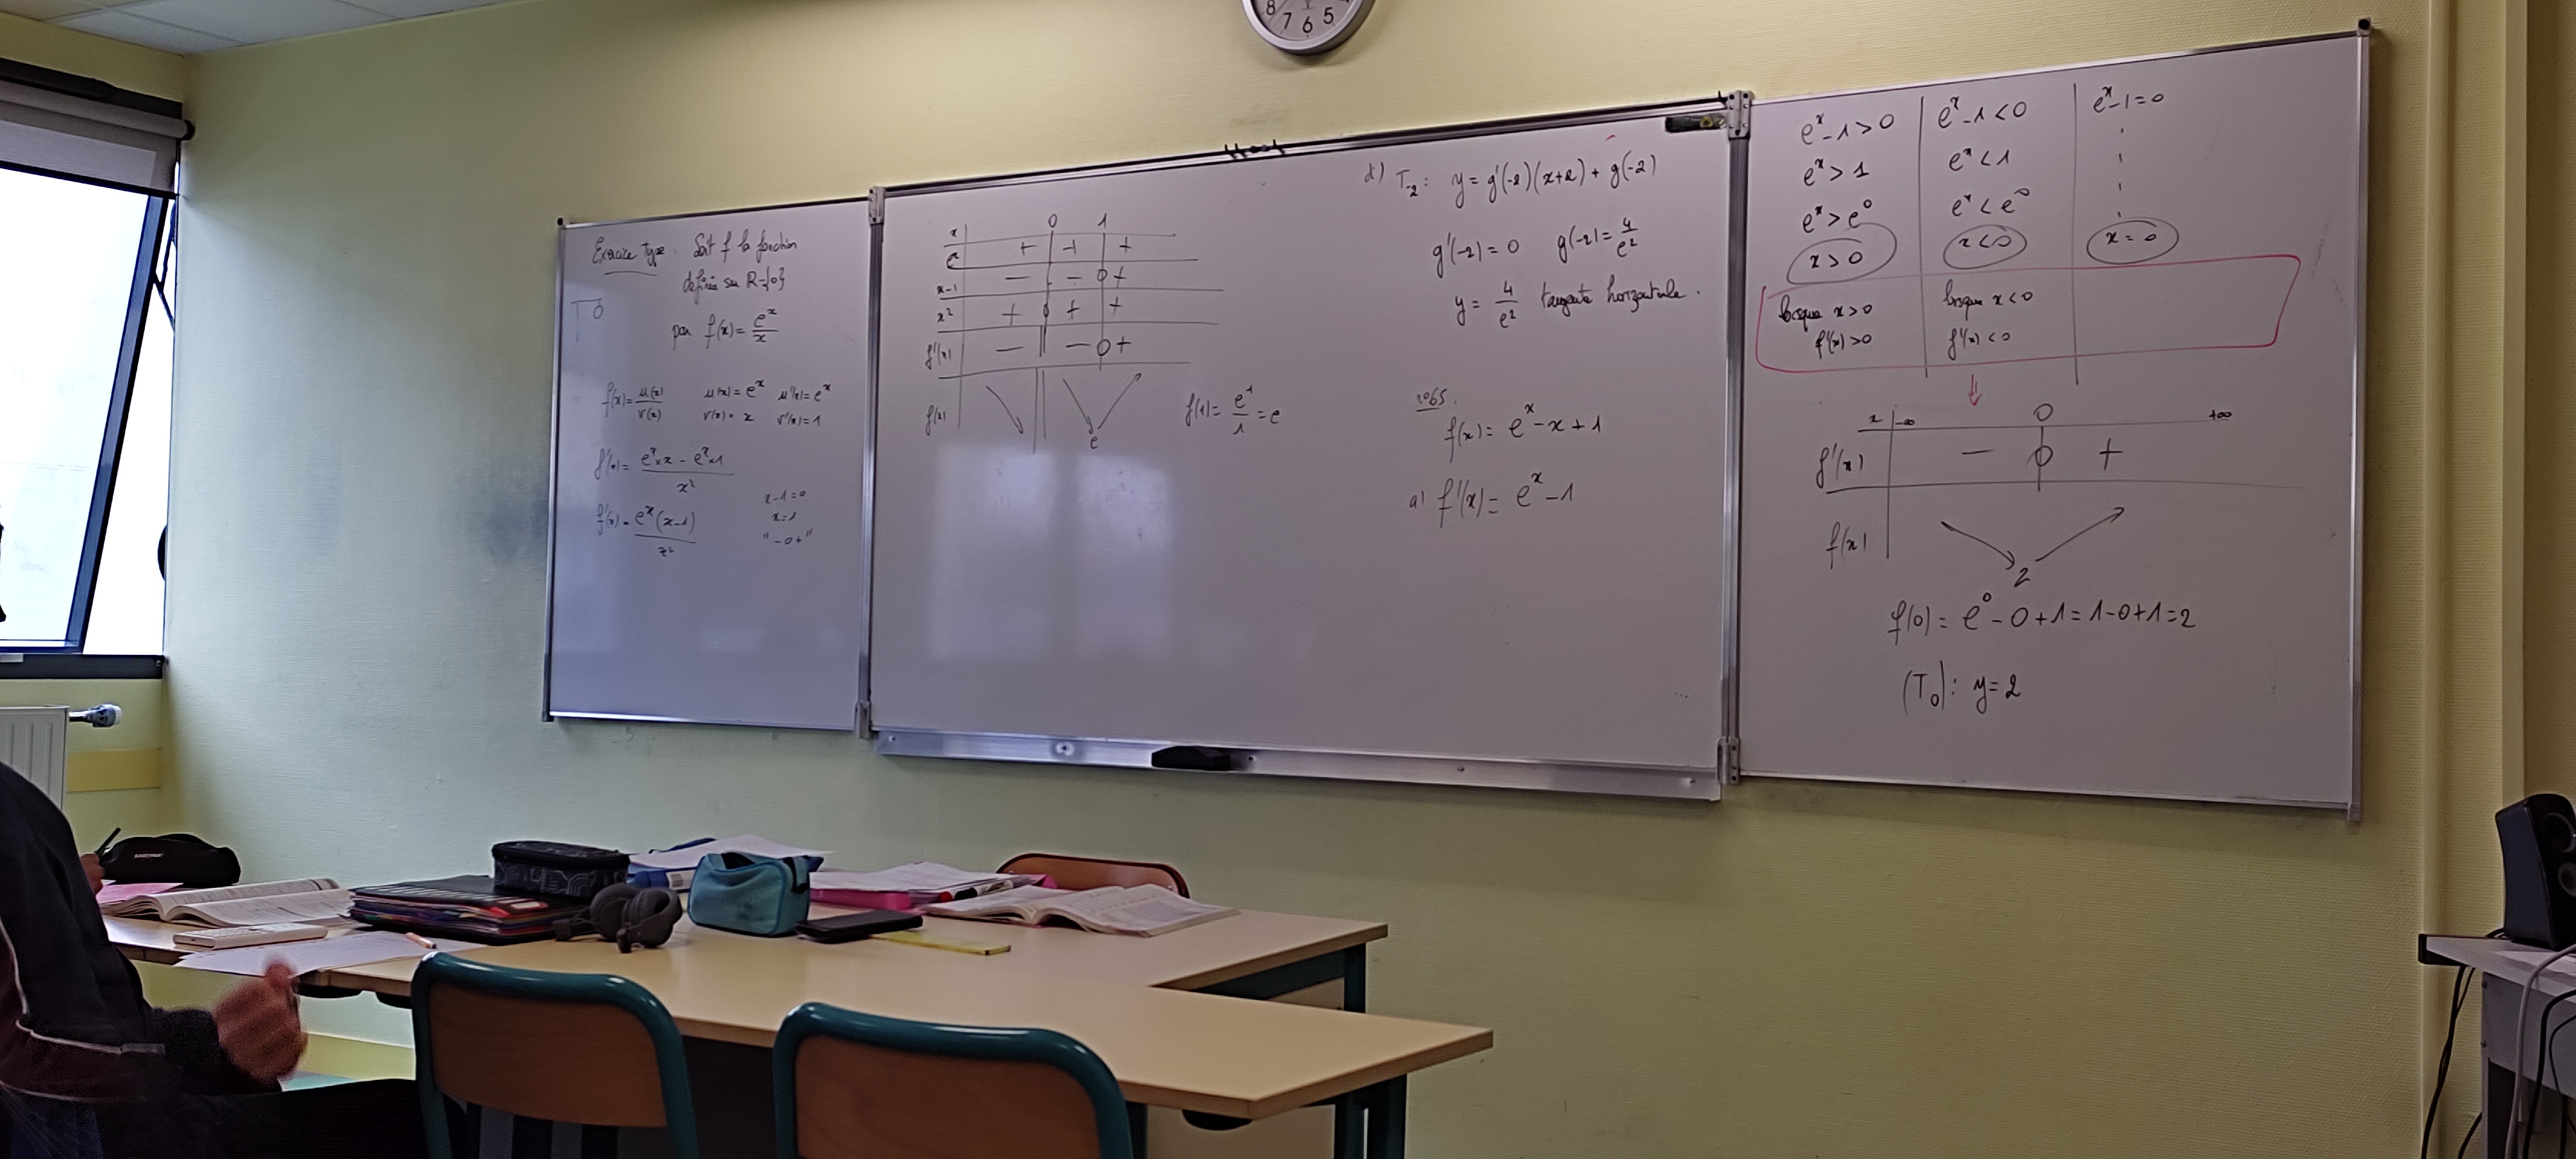 8 7 6 5
Exercice type : Soit f la fonction
définie sur R-{0}
par f(x) = e^x/x
f(x) = u(x)/v(x) u(x) = e^x u'(x) = e^x
v(x) = x v'(x) = 1
f'(x) = (e^x × x - e^x × 1)/x²
f'(x) = e^x(x-1)/x²
x-1=0
x=1
"-0+"
x 0 1
e^x + + +
x-1 - - 0 +
x² + 0 + +
f'(x) - || - 0 +
f(x) ↘ || ↘ e ↗
f(1) = e^1/1 = e
d) T_-2 : y = g'(-2)(x+2) + g(-2)
g'(-2) = 0 g(-2) = 4/e²
y = 4/e² tangente horizontale.
1065.
f(x) = e^x - x + 1
a) f'(x) = e^x - 1
e^x - 1 > 0 e^x - 1 < 0 e^x - 1 = 0
e^x > 1 e^x < 1
e^x > e^0 e^x < e^0
x > 0 x < 0 x = 0
lorsque x > 0 lorsque x < 0
f'(x) > 0 f'(x) < 0
x -∞ 0 +∞
f'(x) - 0 +
f(x) ↘ 2 ↗
f(0) = e^0 - 0 + 1 = 1 - 0 + 1 = 2
(T_0) : y = 2